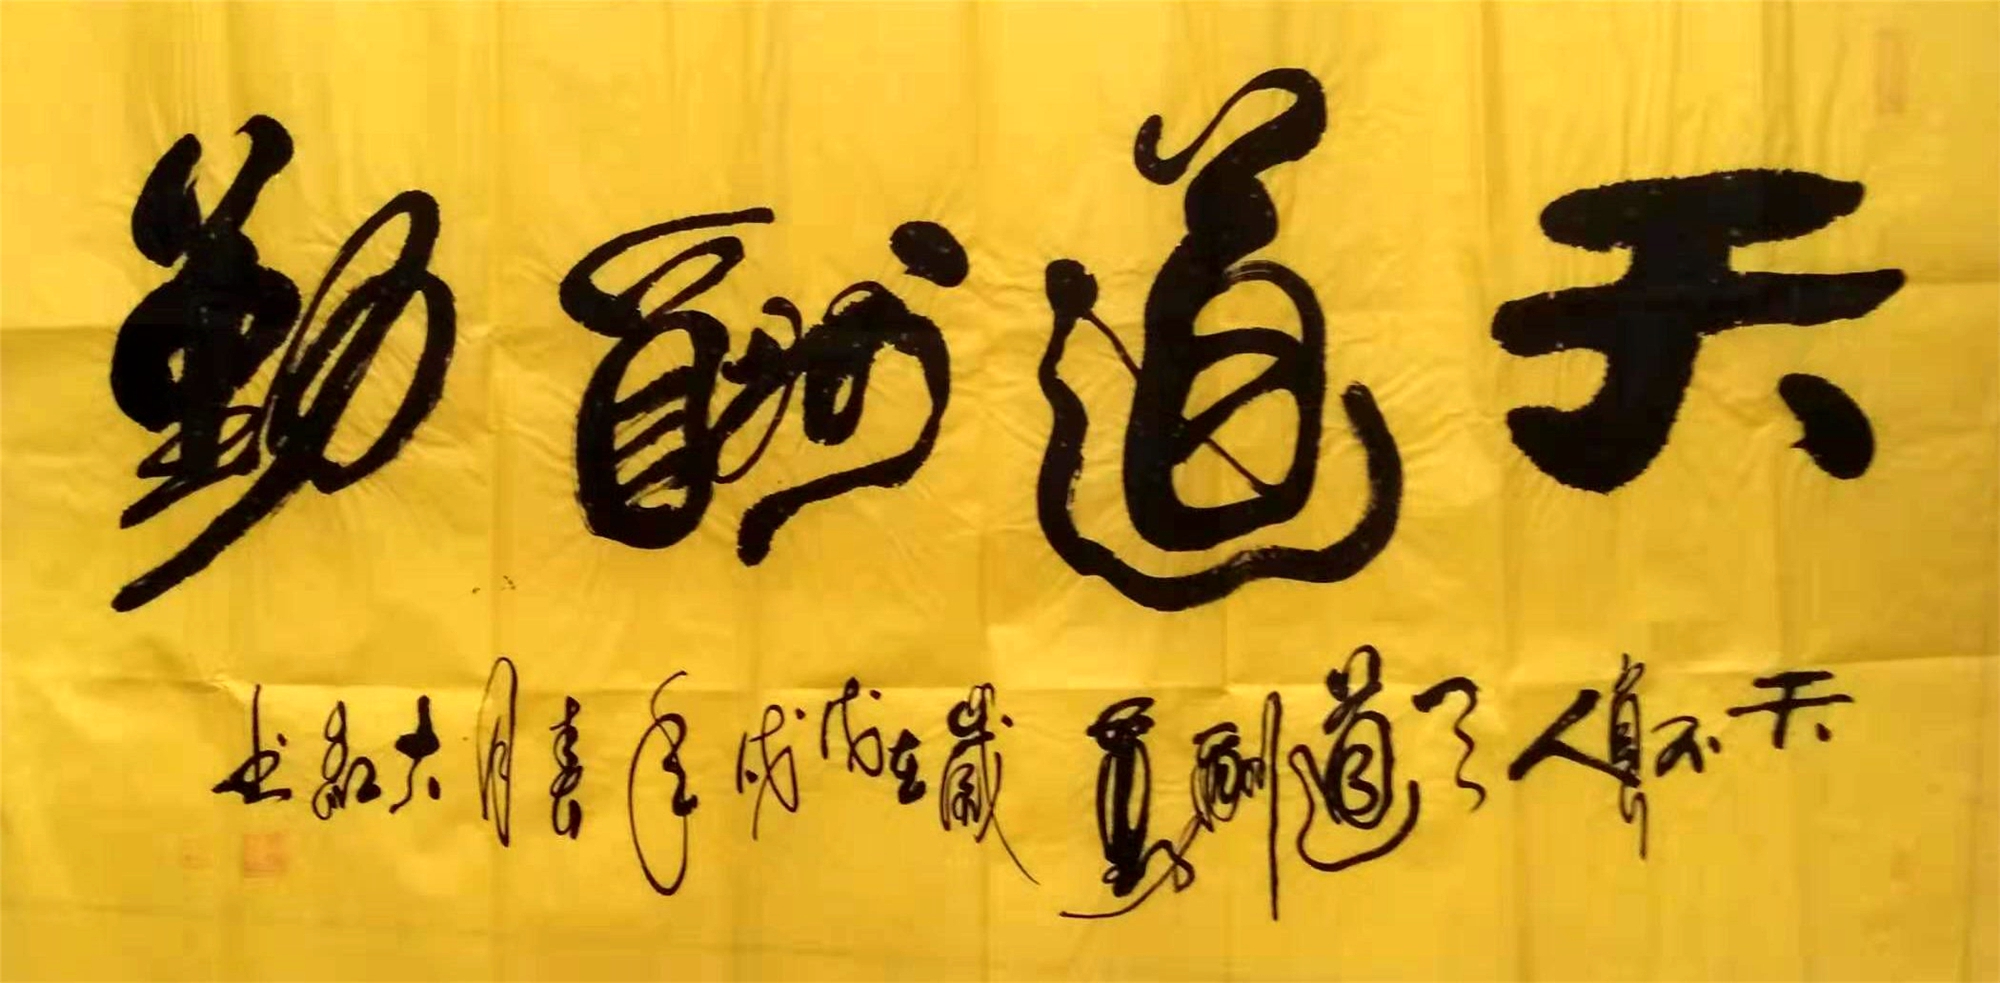 天道酬勤
天不負人天道酬勤歲在戊戌年春月六红书